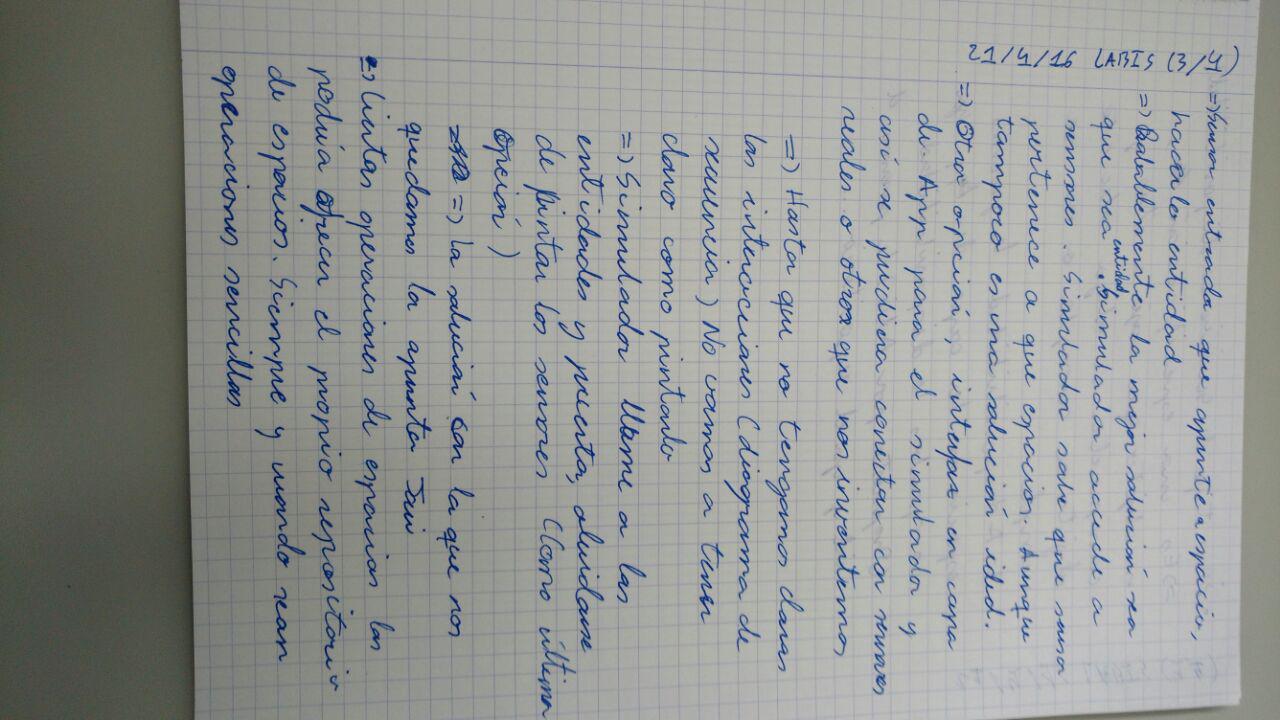 21/4/16 LABIS (3/4)
=> Sensor entrada que apunte a espacio,
hacerlo entidad
=> Probablemente la mejor solución sea
que sea entidad. Simulador accede a
sensores. Simulador sabe que sensor
pertenece a que espacios. Aunque
tampoco es una solución ideal.
=> Otra opción, interfaz en capa
de App para el simulador y
así se pudiera conectar con sensores
reales o otros que nos inventemos
=> Hasta que no tengamos claras
las interacciones (diagrama de
secuencia) No vamos a tener
claro como pintarlo
=> Simulador llame a las
entidades y puerta, olvidarse
de pintar los sensores (Como última
opción)
=> La solución con la que nos
quedamos la apunta Javi
=> Ciertas operaciones de espacios las
podría ofrecer el propio repositorio
de espacios. Siempre y cuando sean
operaciones sencillas